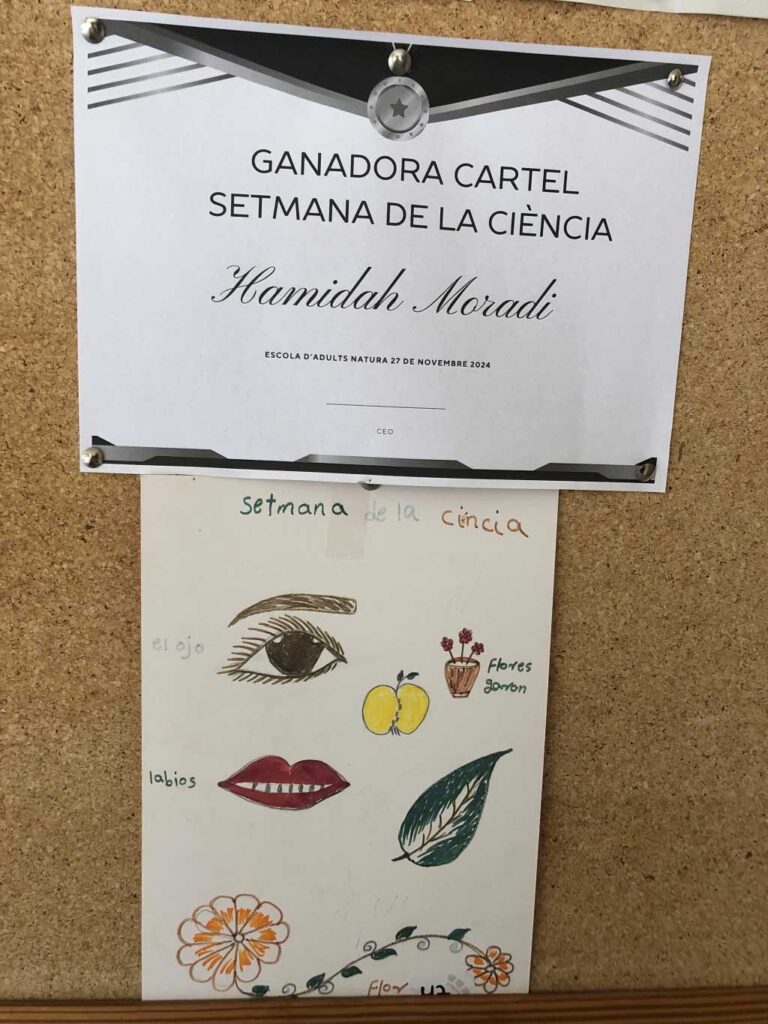 GANADORA CARTEL
SETMANA DE LA CIÈNCIA
Hamidah Moradi
ESCOLA D'ADULTS NATURA 27 DE NOVEMBRE 2024
CEO
setmana de la ciència
el ojo
flores
labios
flor